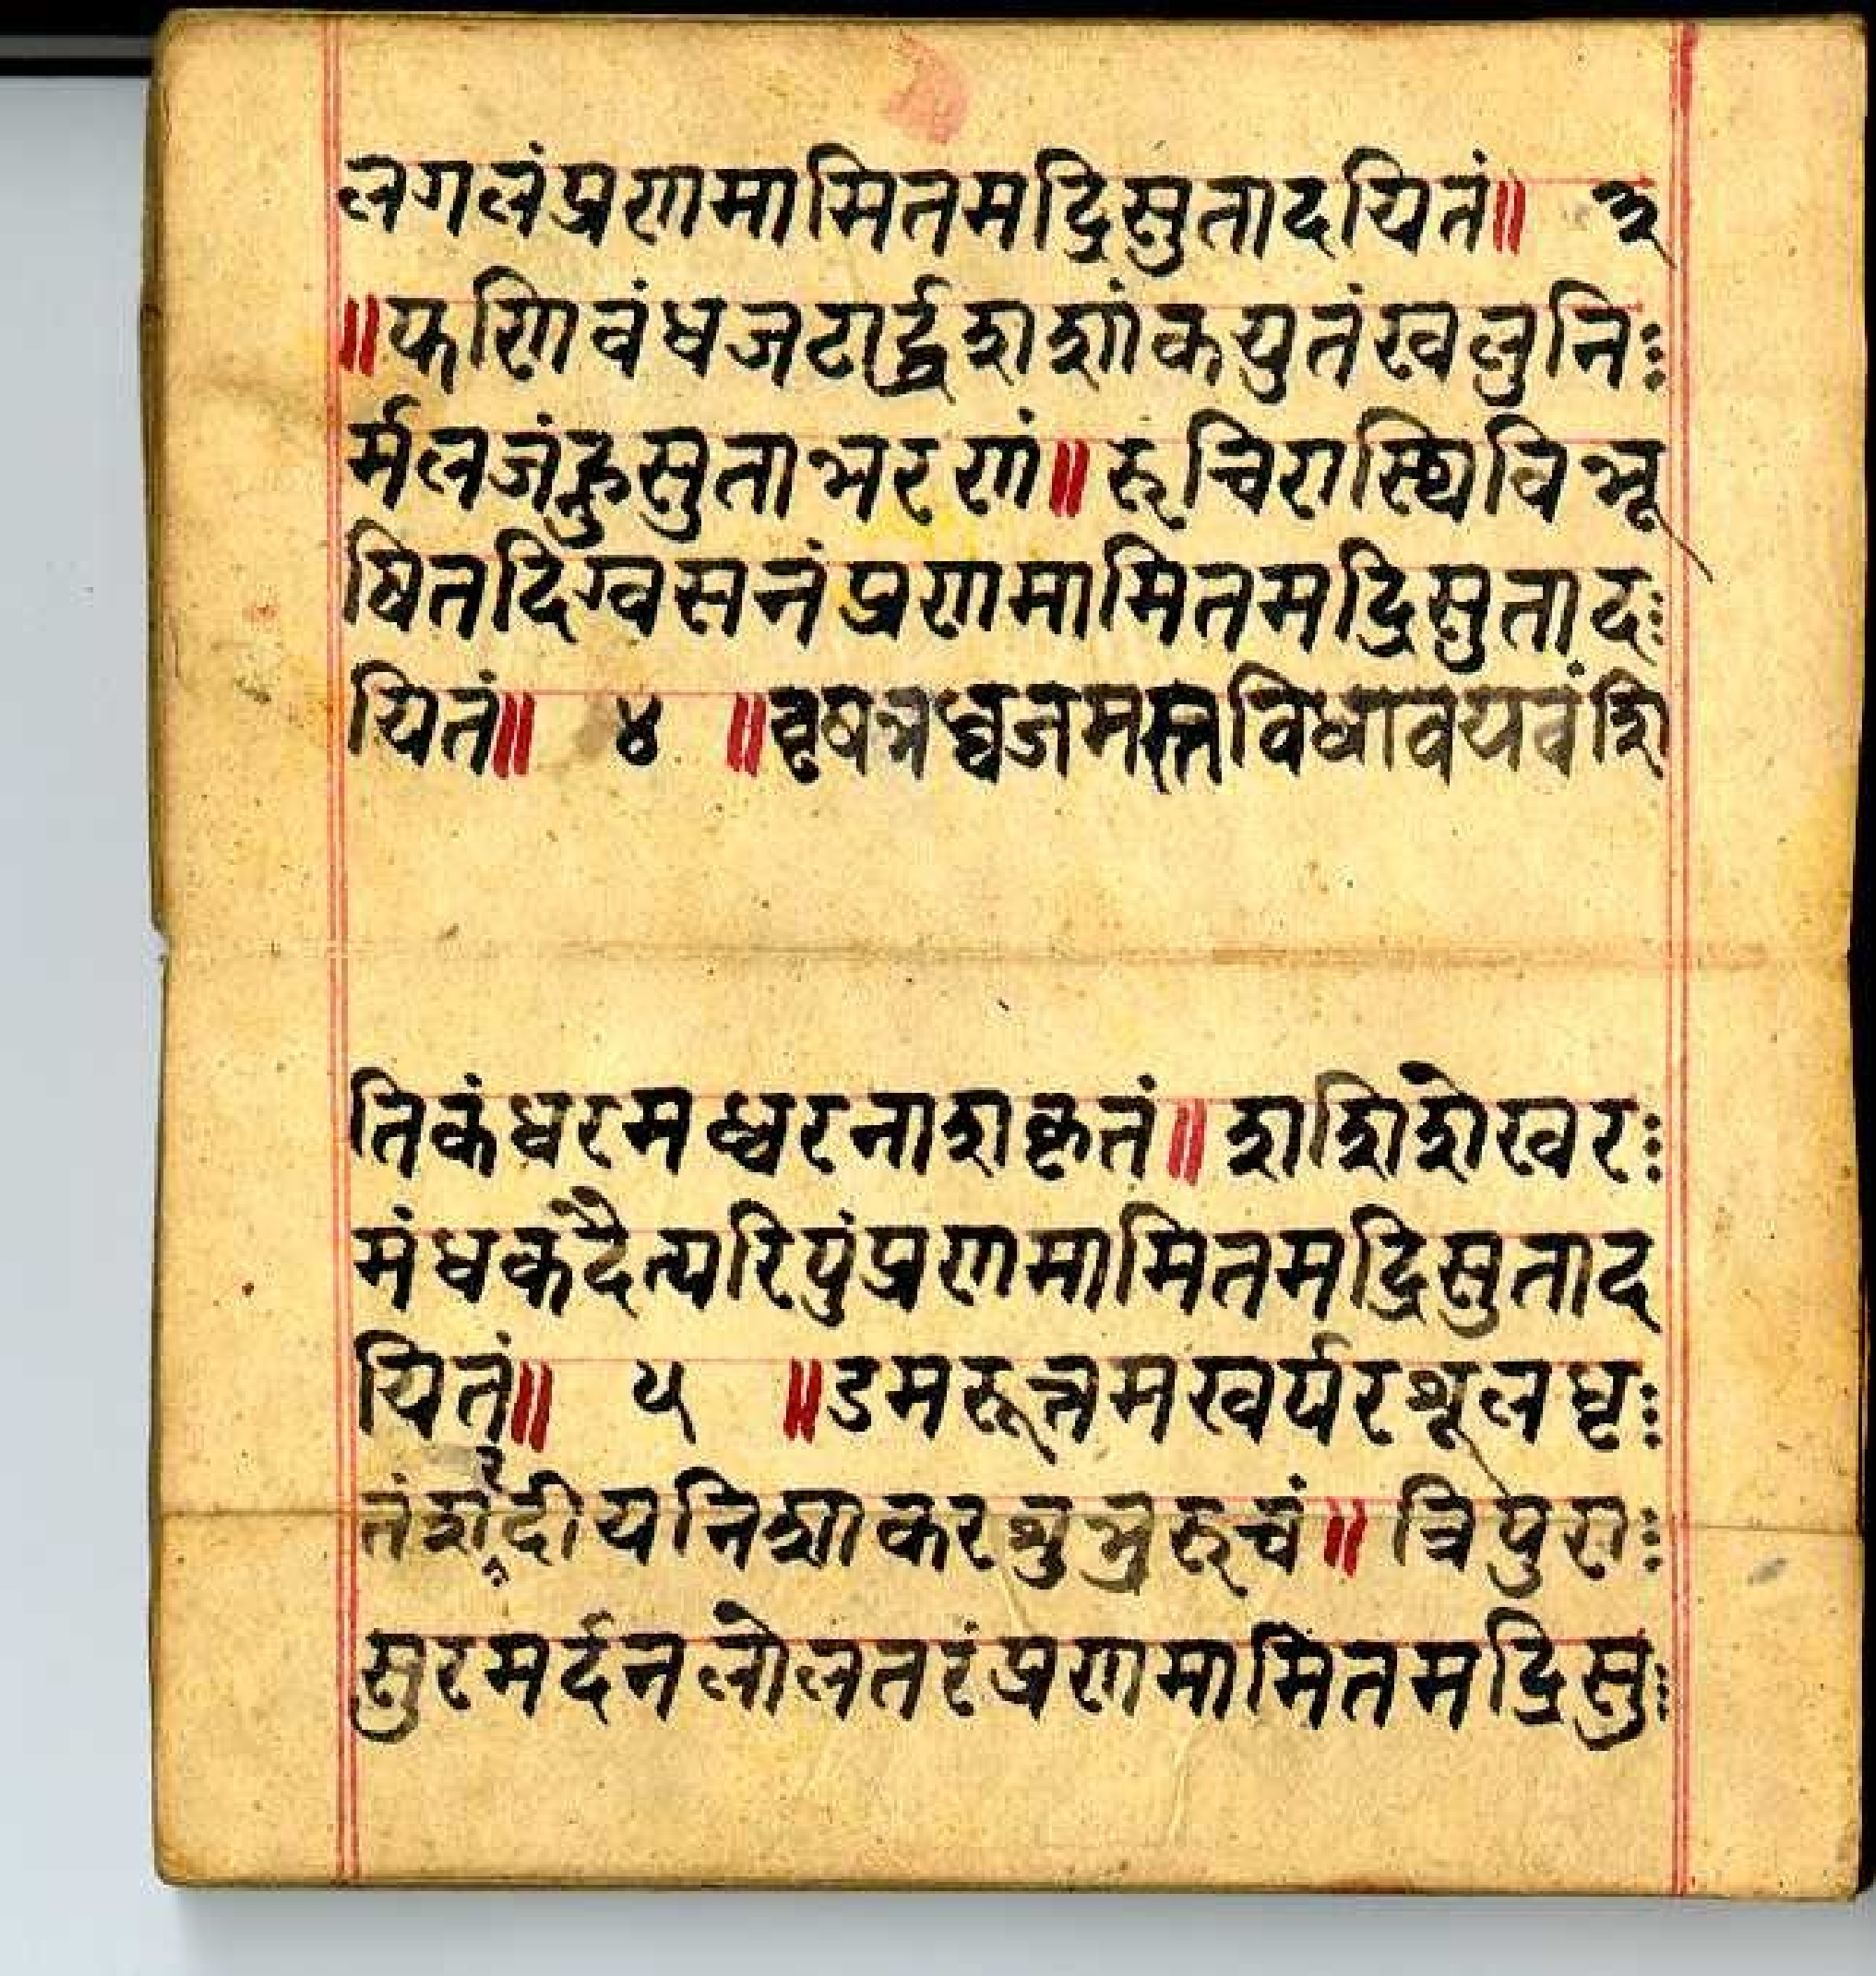 लगलंप्रणमामितमद्रिसुतादयितं॥ ३
॥फणिवंधजटार्द्धशशांकयुतंखलुनिः
र्मलजंह्नुसुताभरणं॥रुचिरास्थिविभू
षितदिग्वसनंप्रणमामितमद्रिसुतादः
यितं॥ ४ ॥वृषभध्वजमस्तविधावयवंशि
तिकंधरमध्वरनाशकृतं॥शशिशेखरः
मंधकदैत्यरिपुंप्रणमामितमद्रिसुताद
यितं॥ ५ ॥डमरूत्तमखर्परशूलधृः
तंशरदीयनिशाकरशुभ्ररुचं॥त्रिपुराः
सुरमर्दनलोलतरंप्रणमामितमद्रिसुः